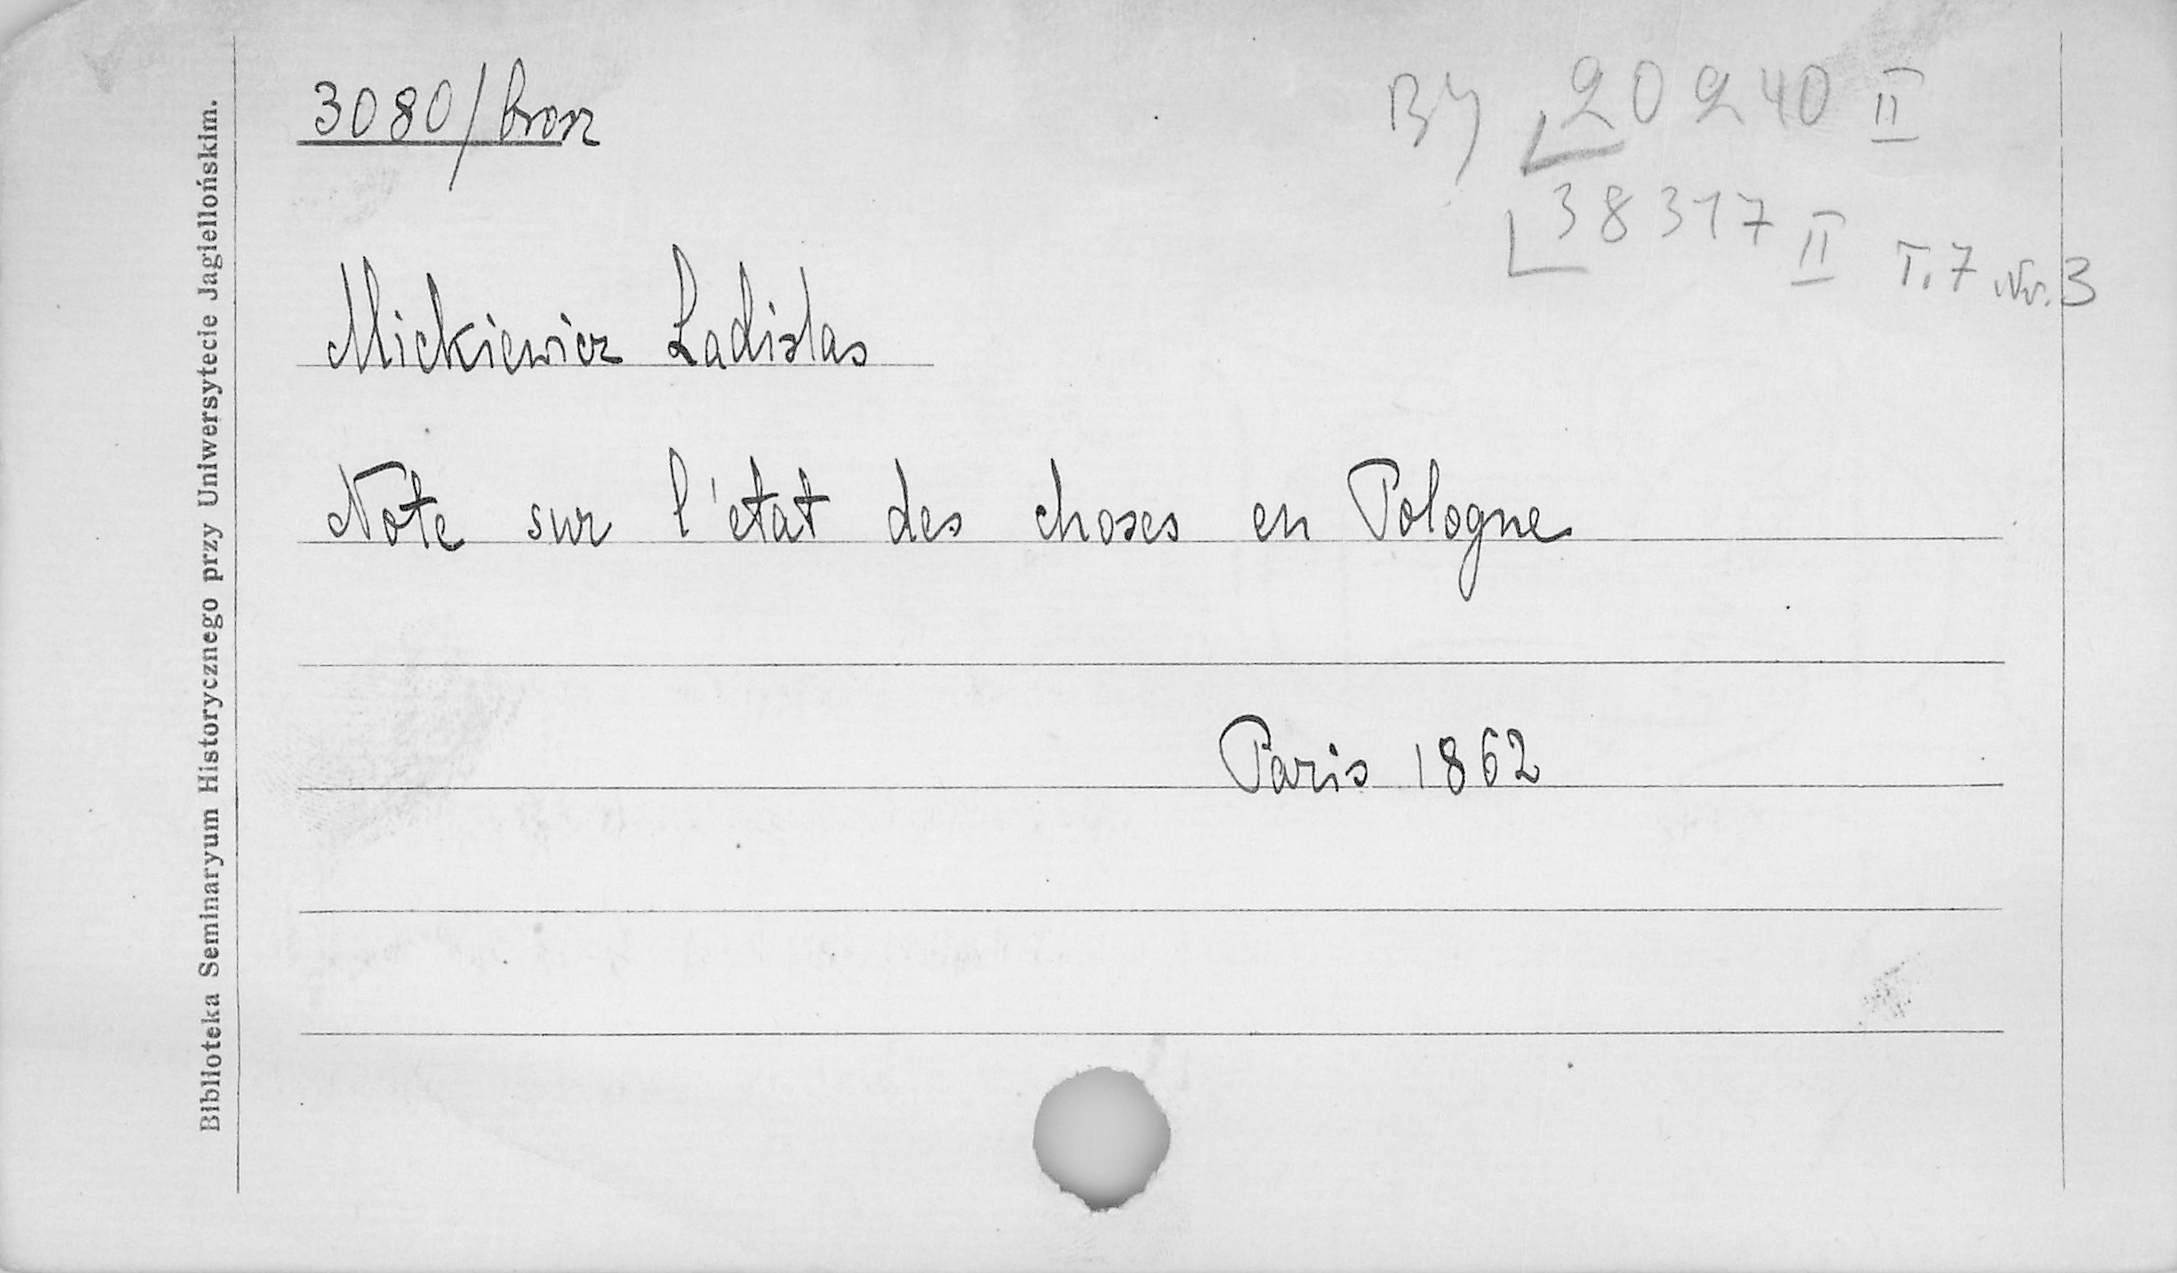 3080/brosz
BJ 20240 II
38317 II T.7 Nr. 3
Mickiewicz Ladislas
Note sur l'état des choses en Pologne
Paris 1862
Biblioteka Seminaryum Historycznego przy Uniwersytecie Jagiellońskim.